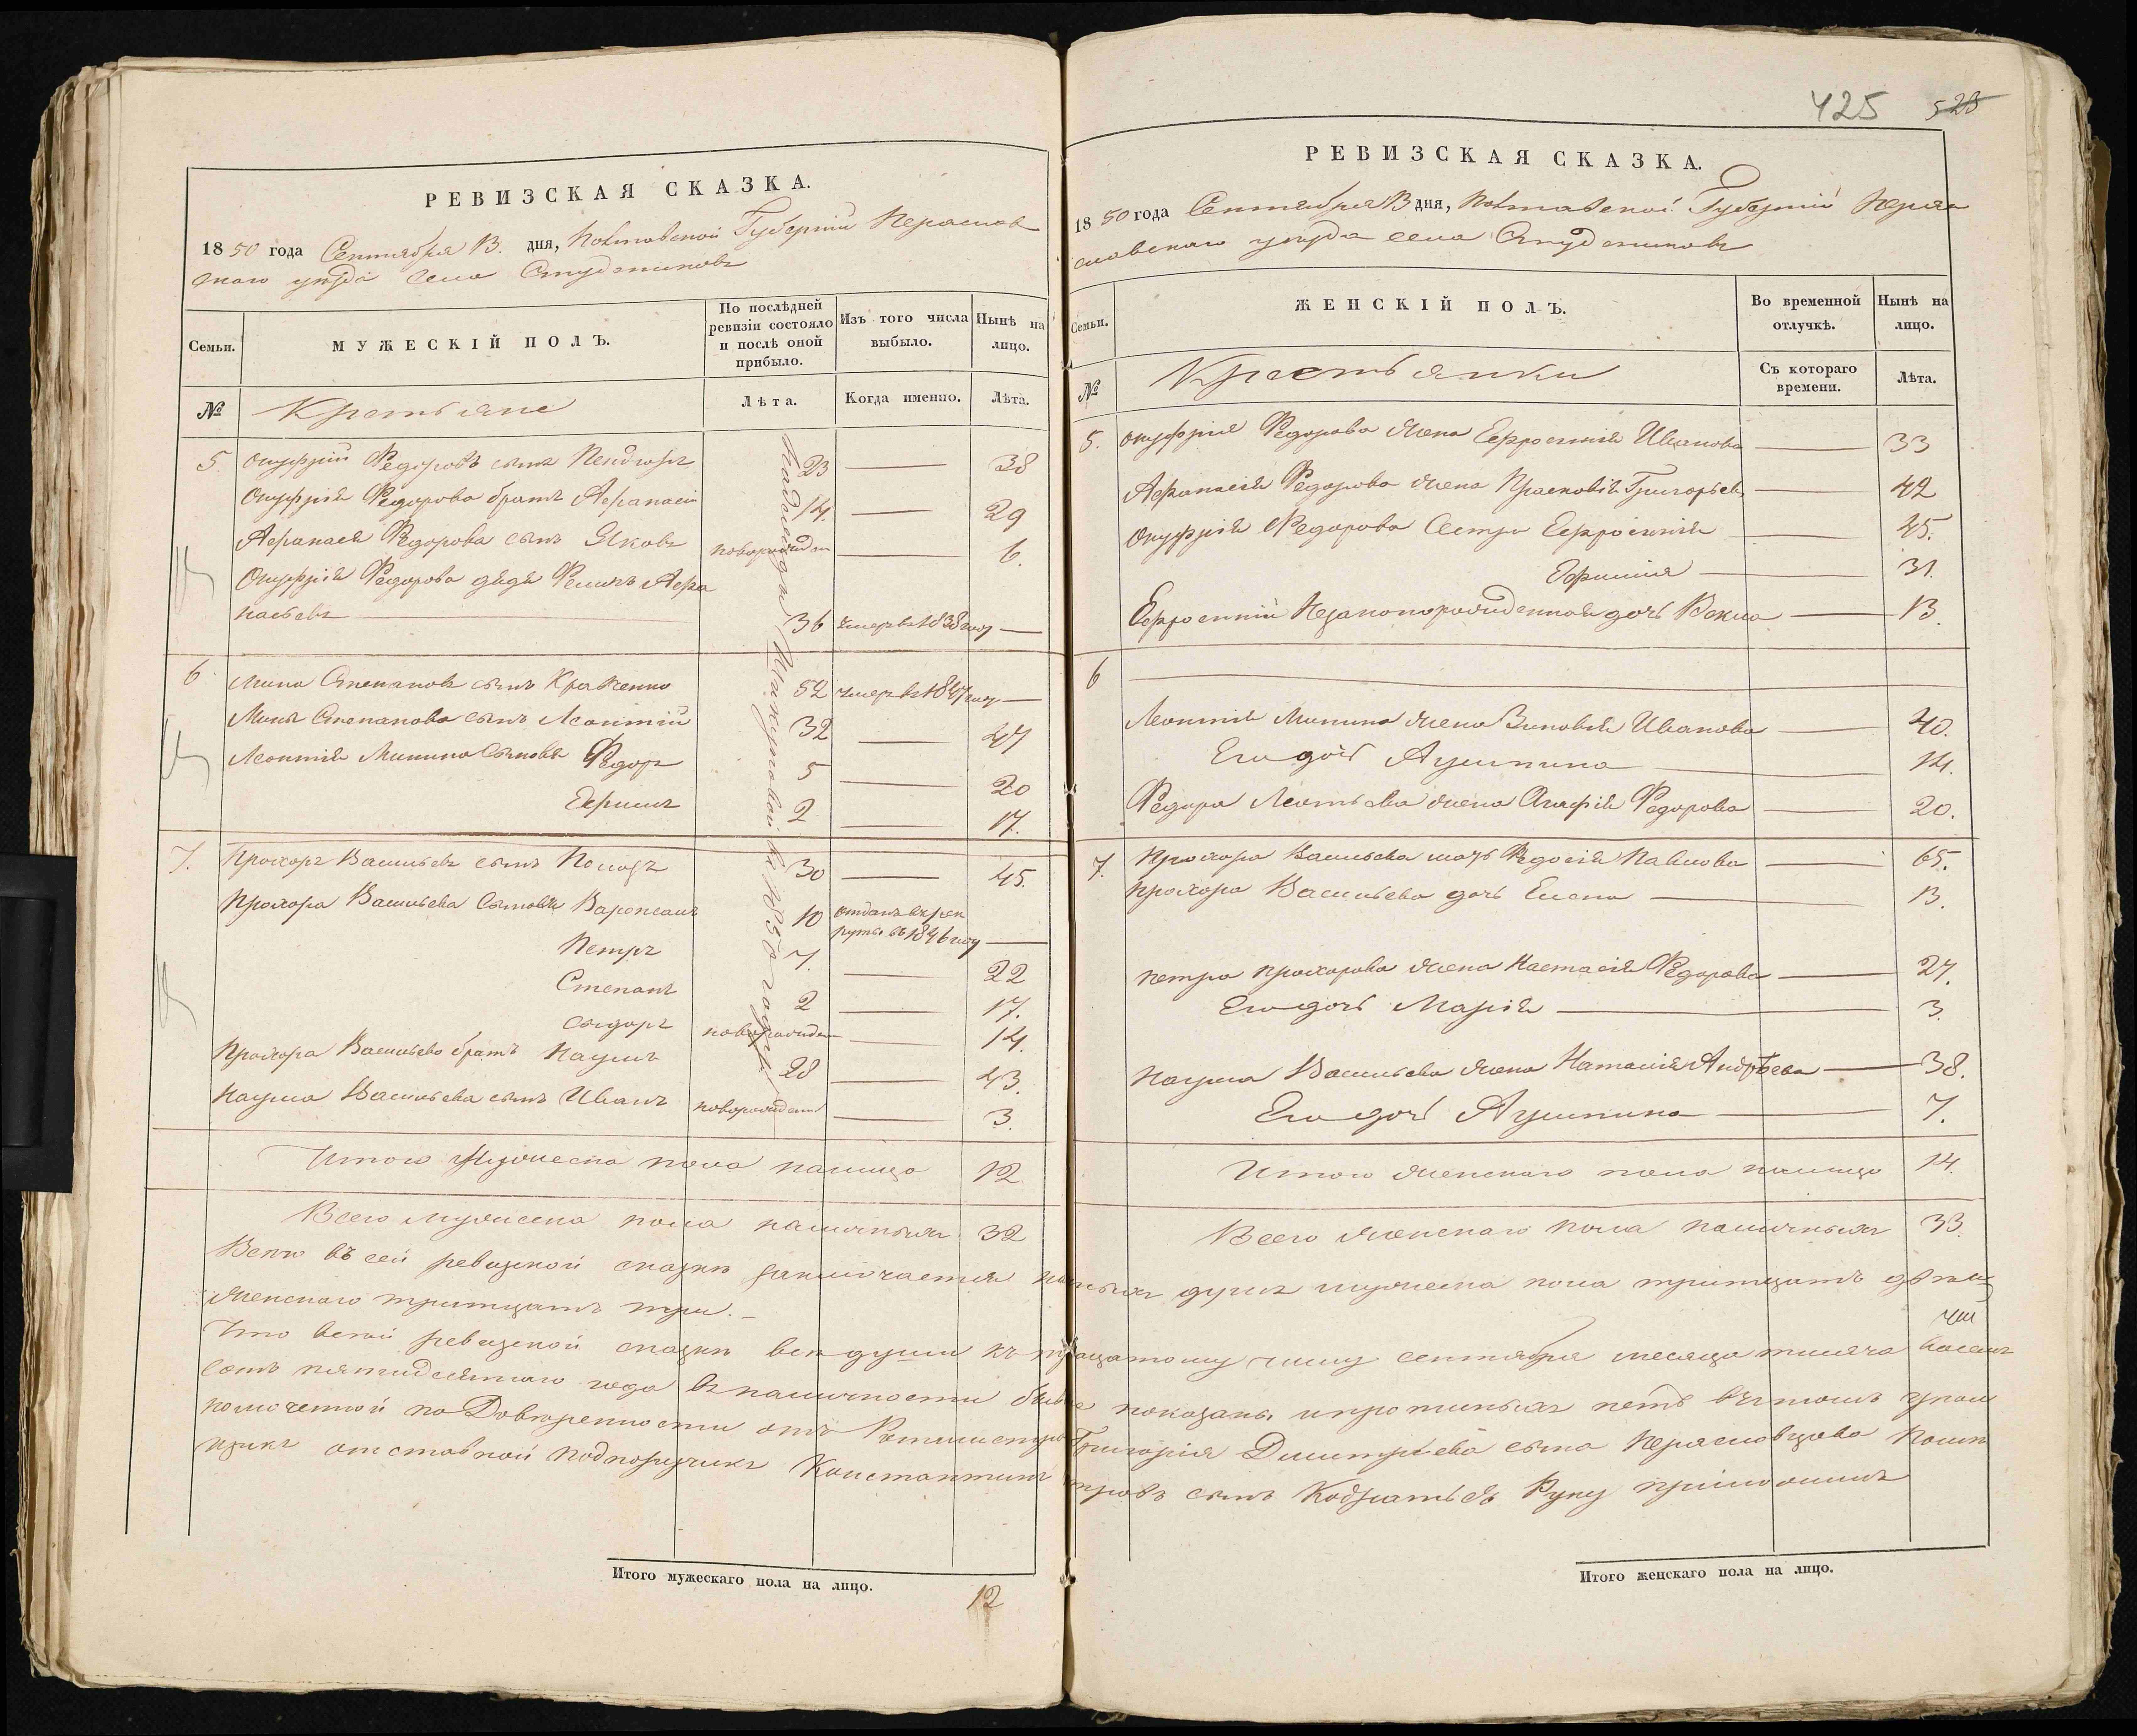 РЕВИЗСКАЯ СКАЗКА.
1850 года Сентября 13. дня, Полтавской Губерніи Переяслов
скаго уезда села Студениковъ
Семьи.
МУЖЕСКІЙ ПОЛЪ.
По послѣдней ревизіи состояло и послѣ оной прибыло.
Изъ того числа выбыло.
Нынѣ на лицо.
№
Крестьяне
Лѣта.
Когда именно.
Лѣта.
5. Онуфрій Федоровъ сынъ 23 38
Онуфрія Федорова братъ Афанасій 14. 29
Афанасія Федорова сынъ Яковъ новорожден 6.
Онуфрія Федорова дядя Филипъ Афа
насьевъ 36 умеръ въ 1838 году
6. Мина Степановъ сынъ Кравченко 52 умеръ въ 1847 году
Мины Степанова сынъ Леонтій 32 47
Леонтія Минина сыновья Федоръ 5 20
Ефимъ 2 17.
7. Прохоръ Васильевъ сынъ 30 45.
Прохора Васильева Сыновья 10 отданъ въ рек
руты въ 1846 году
Петръ 7. 22
Степанъ 2 17.
Сидоръ новорожден 14.
Прохора Васильева братъ Наумъ 28 43.
Наума Васильева сынъ Иванъ новорожденъ 3.
Итого Мужеска пола налицо 12
Всего мужеска пола наличныхъ 32
Итого мужескаго пола на лицо.
12
425 523
РЕВИЗСКАЯ СКАЗКА.
1850 года Сентября 13 дня, Полтавской Губерніи Перея
словскаго уезда села Студениковъ
Семьи.
ЖЕНСКІЙ ПОЛЪ.
Во временной отлучкѣ.
Нынѣ на лицо.
№
Крестьянки
Съ котораго времени.
Лѣта.
5. Онуфрія Федорова жена Ефросинія Иванова 33
Афанасія Федорова жена Прасковія Григорьев 42
Онуфрія Федорова Сестра Ефросинія 45.
Ефимія 31.
Ефросиніи Незаконорожденная дочь 13.
6
Леонтія Минина жена Зиновія Иванова 40.
Его дочь Акулина 14.
Федора Леонтьева жена Агафія Федорова 20.
7. Прохора Васильева мать Федосія Павлова 65.
Прохора Васильева дочь Елена 13.
Петра Прохорова жена Настасія Федорова 27.
Его дочь Марія 3.
Наума Васильева жена Наталія Андрѣева 38.
Его дочь Акулина 7.
Итого женскаго пола налицо 14.
Всего женскаго пола наличныхъ 33.
Всего въ сей ревизской сказкѣ заключается наличныхъ душъ мужеска пола тритцать двѣ
женскаго тритцать три.
Что всей ревизской сказкѣ всѣ души къ числу сентября месяца тысяча восемь
сотъ пятидесятаго года въ наличности показаны и протчихъ нетъ въ томъ упол
номоченной по Довѣренности отъ Ротмистра Григорія Дмитріева сына Переясловцова
отставной подпорутчикъ Константинъ сынъ Руку приложилъ
Итого женскаго пола на лицо.